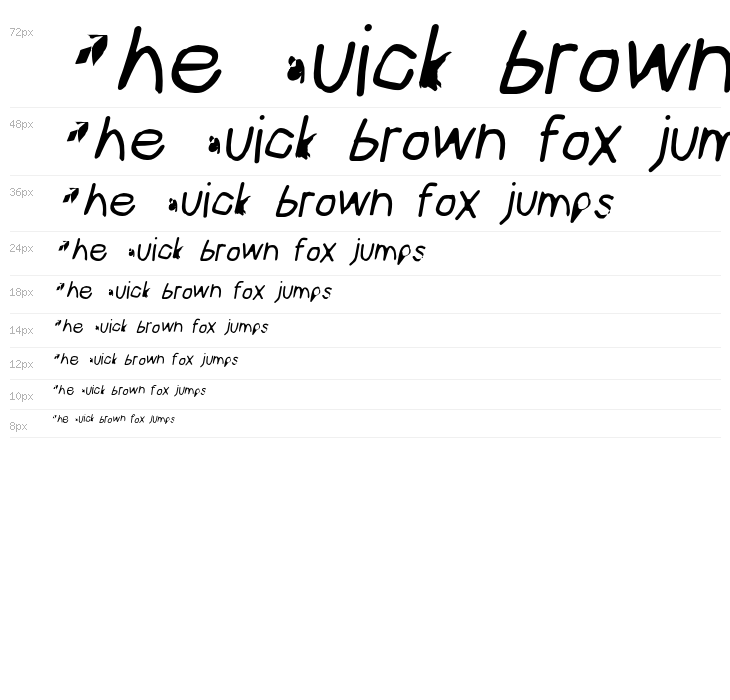 72px he uick brown
48px he uick brown fox jum
36px he uick brown fox jumps
24px he uick brown fox jumps
18px he uick brown fox jumps
14px he uick brown fox jumps
12px he uick brown fox jumps
10px he uick brown fox jumps
8px he uick brown fox jumps